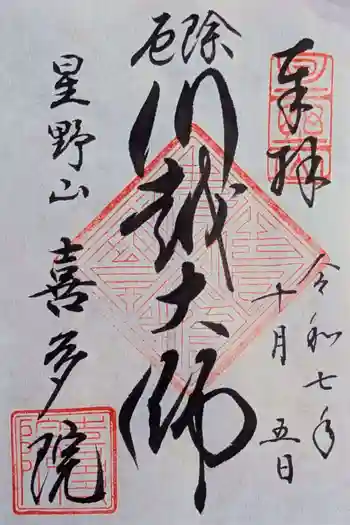 奉拝
令和七年
十月五日
厄除
川越大師
星野山
喜多院